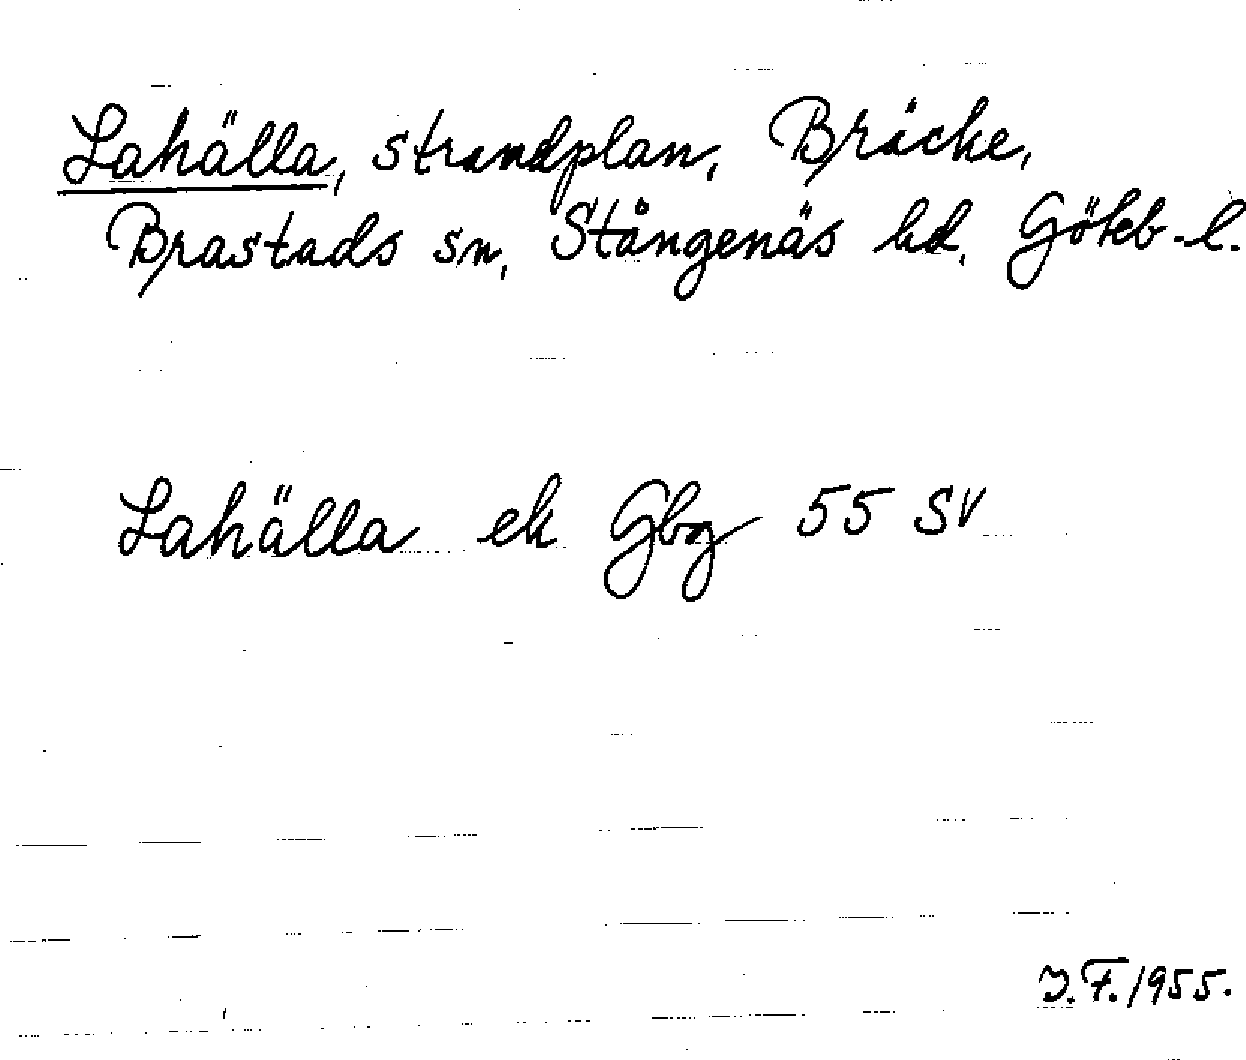 Lahälla, strandplan, Bräcke,
Brastads sn, Stångenäs hd, Göteb-l.
Lahälla ek Gbg 55 SV
J.F. 1955.